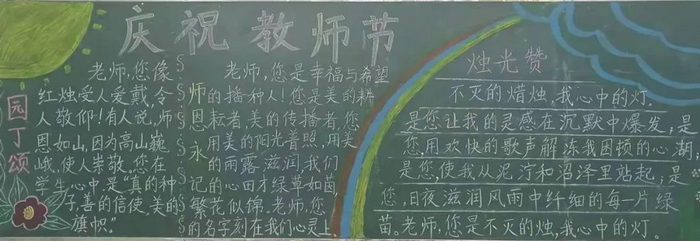 庆祝教师节
园丁颂
老师,您像
红烛受人爱戴,令
人敬仰!有人说,师
恩如山,因为高山巍
峨,使人崇敬。您在
学生心中,是“真的种
子,善的信使,美的
旗帜。”
师恩永记
老师,您是幸福与希望
的播种人!您是美的耕
耘者,美的传播者,您
用美的阳光普照,用美
的雨露,滋润,我们
的心田才绿草如茵
繁花似锦。老师,您
的名字刻在我们心灵上。
烛光赞
不灭的蜡烛,我心中的灯.
是您让我的灵感在沉默中爆发;是
您用欢快的歌声解冻我困顿的心湖,
是您,使我从泥泞和沼泽里站起;是
您,日夜滋润风雨中纤细的每一片绿
苗。老师,您是不灭的烛,我心中的灯.